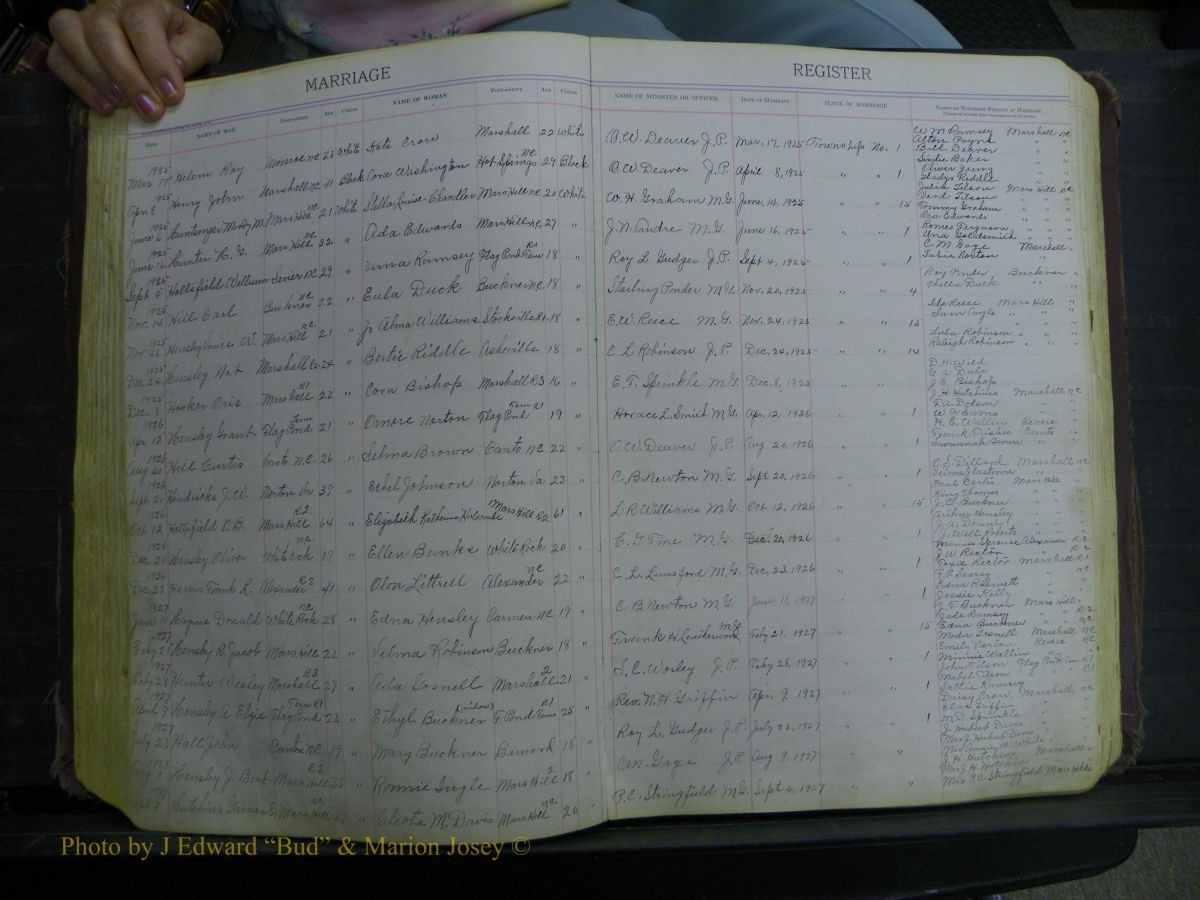 MARRIAGE
REGISTER
Date NAME OF MAN POST-OFFICE AGE COLOR NAME OF WOMAN POST-OFFICE AGE COLOR
NAME OF MINISTER OR OFFICER DATE OF MARRIAGE PLACE OF MARRIAGE NAMES OF WITNESSES PRESENT AT MARRIAGE
1925 Mar. 17 Helem Roy Monroe NC 23 White Kate Crow Marshall 22 White O.W. Deaver J.P. Mar. 17, 1925 Township No. 1 W M Ramsey Marshall NC
Alton Payne " "
Bill Deaver " "
1925 Apr. 8 Henry John Marshall NC 41 Black Cora Washington Hot Springs NC 29 Black O.W. Deaver J.P. April 8, 1925 " " 1 Sudie Baker " "
Oliver Young " "
Gladys Riddle " "
1925 June 6 Huntsinger Mody M. Mars Hill NC 21 White Stella Louise Chandler Mars Hill NC 20 White W. H. Graham M.G. June, 14, 1925 " " 15 Julia Tilson Mars Hill NC
Verd Tilson " "
Tommy Graham " "
1925 June 16 Hunter H. G. Mars Hill NC 32 " Ada Edwards Mars Hill NC, 27 " J. N. Andre M.G. June 16, 1925 " " 1 Ora Edwards " "
Romeo Ferguson " "
Una Goldsmith " "
1925 Sept 5 Hollifield William Sevier NC 29 " Ramsey Flag Pond R1 Tenn 18 " Roy L. Gudger J.P. Sept 4, 1925 " " 1 C M Gage Marshall
Tubie Norton "
1925 Nov. 14 Hill Earl Buckner NC 22 " Eula Duck Buckner NC. 18 " Starling Ponder M.G. Nov. 20, 1925 " " 4 Roy Ponder Buckner "
Duck " "
1925 Nov 22 Hensley Vance W. Mars Hill NC 21 " Jo Alma Williams Stocksville R1 18 " E. W. Reece M.G. Nov. 24, 1925 " " 15 Ida Reece Mars Hill "
Sam Angle " "
1925 Dec 24 Hensley Nat Marshall R2 24 " Bertie Riddle Asheville 18 " C L Robinson J.P. Dec. 24, 1925 " " 14 Lula Robinson " "
Raleigh Robinson " "
1925 Dec. 8 Hooker Oris Marshall R1 22 " Cora Bishop Marshall R3 16 " E. T. Sprinkle M.G. Dec. 8, 1925 D. H. Wild
G A Dula
J. E. Bishop
1926 Apr. 12 Hensley Grant Flag Pond Tenn 21 " Ornore Norton Flag Pond Tenn R1 19 " Horace L. Smith M.G. Apr. 12, 1926 " " 1 J. H. Hutchins Marshall NC
F. A. Dotson " "
W A Sams " "
1926 Aug 20 Hill Curtis Canto N.C. 26 " Selma Brown Canto NC 22 " O.W. Deaver J.P. Aug 20, 1926 " " 1 A. E. Wallin Revere "
Frank Canto "
Savannah Brown " "
1926 Sept 20 Hendricks J. W. Norton Va 39 " Ethel Johnson Norton Va 23 " C. B. Newton M.G. Sept 20, 1926 " " 1 O. S. Dillard Marshall NC
Velma Eastwood " "
Paul Carter Mars Hill
1926 Oct 12 Hollifield O. B. Mars Hill R2 64 " Elizabeth Katherine Holcombe Mars Hill R2 61 " L R Williams M.G. Oct 12, 1926 " " 15 King Thomas " "
J. C. Buckner " "
Arthur Hensley " "
1926 Dec. 20 Hensley Oliver White Rock NC 19 " Ellen Banks White Rock 20 " E. D. Fore M.G. Dec. 20, 1926 " " 1 J. A. Dennis " "
J. Will Roberts " "
Minnie Sprouse Alexander R2
1926 Dec. 23 Harris Frank L. Alexander R2 41 " Olon Littrell Alexander NC 22 " C. L. Lunsford M.G. Dec, 23, 1926 " " 1 J W Rector " R2
Texie Rector Marshall R1
T. P. Searcy " NC
1927 Jan 11 Haynie Donald White Rock NC 28 " Edna Hensley Carmen NC. 19 " C B Newton M.G. Jan 11, 1927 " " 1 Edna R Barnett " "
Jessie Kelly " "
1927 Feby 21 Hensley R. Jacob Mars Hill 22 " Velma Robinson Buckner 18 " Frank H Leatherwood M.G. Feby 21, 1927 " " 15 J. F. Buckner Mars Hill
Jade Ramsey " R2
Edna Buckner " NC
1927 Feby 28 Hunter Wesley Marshall R3 27 " Ada Gosnell Marshall 2 21 " S. C. Worley J.P. Feby 28, 1927 " " 1 Moda Gosnell Marshall NC
Emily Norton Revere NC
Minnie Wallin " "
1927 April 9 Hensley A Elzie Flag Pond Tenn R1 23 " Ethyl Buckner (widow) F. Pond Tenn R1 25 " Rev. N. H. Griffin Apr. 9, 1927 " " 1 John Tilson Flag Pond Tenn R1
Mabel Tilson " " R1
1927 July 23 Hall John Canton NC. 19 " Mary Buckner Barnard 18 " Roy L. Gudger J.P. July 23, 1927 " " 1 Sallie Ramsey
Daisy Crow Marshall NC
Griffin " "
1927 Aug 9 Hensley J. Bert Mars Hill R2 35 " Ronnie Ingle Mars Hill 2 18 " C.M. Gage J.P. Aug 9, 1927 " M. D. Sprinkle
J. Hubert Davis
Mrs J. Hubert Davis
Hutchins Garner E. Mars Hill NC 27 " Cleota M Davis Mars Hill NC 20 " P. C. Stringfield M.G. Sept 4, 1927 " " J. H. Hutchins Marshall
Mrs J. H. Hutchins "
Mrs P.C. Stringfield Mars Hill
Photo by J Edward "Bud" & Marion Josey ©